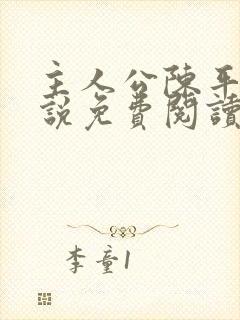 主人公陳平
說免費閱讀
李童1